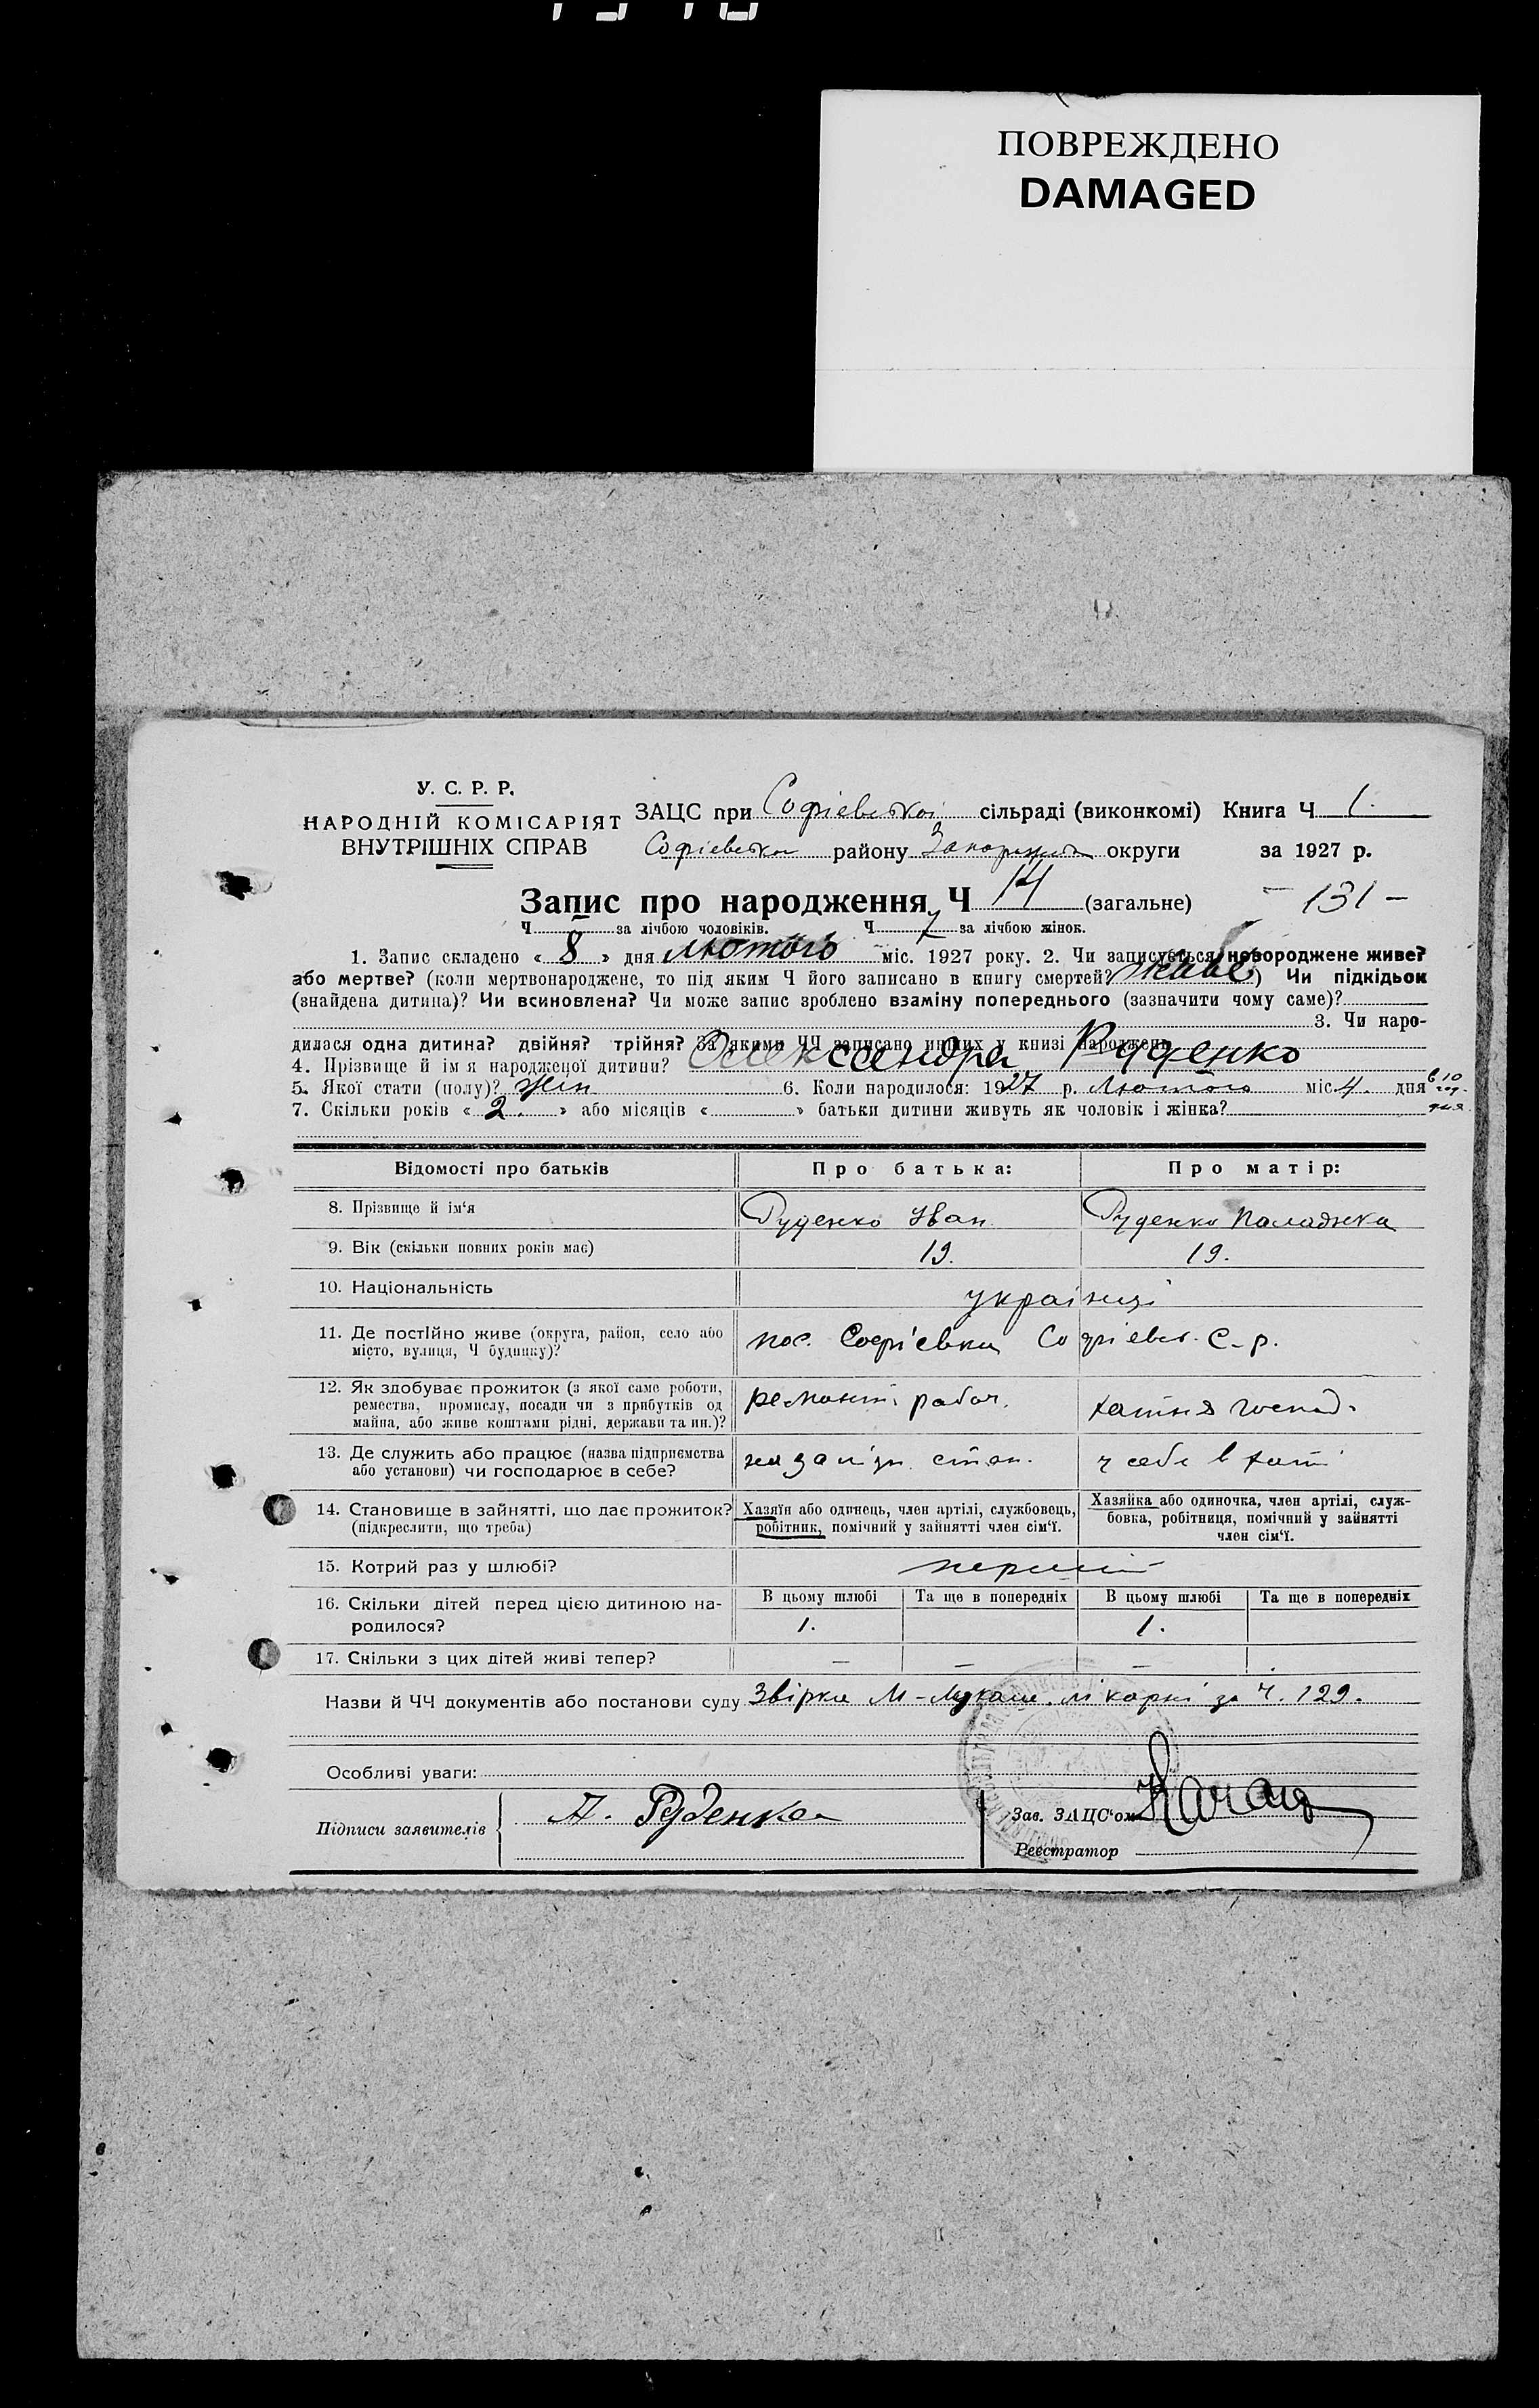 ПОВРЕЖДЕНО
DAMAGED
У. С. Р. Р.
НАРОДНІЙ КОМІСАРІЯТ
ВНУТРІШНІХ СПРАВ
ЗАЦС при Софіевськоі сільраді (виконкомі) Книга Ч 1.
району округи за 1927 р.
Запис про народження Ч 14 (загальне) – 131 –
Ч за лічбою чоловіків. Ч 7 за лічбою жінок.
1. Запис складено « 8 » дня лютого міс. 1927 року. 2. Чи записується новороджене живе?
або мертве? (коли мертвонароджене, то під яким Ч його записано в книгу смертей? живе) Чи підкідьок
(знайдена дитина)? Чи всиновлена? Чи може запис зроблено взаміну попереднього (зазначити чому саме)?
3. Чи наро-
дилася одна дитина? двійня? трійня? За якими ЧЧ записано инших у книзі народжень
4. Прізвище й ім я народженої дитини? Олександра Руденко
5. Якої стати (полу)? жін 6. Коли народилося: 1927 р. Лютого міс. 4. дня в 10 год. дня
7. Скільки років « 2. » або місяців « » батьки дитини живуть як чоловік і жінка?
Відомості про батьків Про батька: Про матір:
8. Прізвище й ім‘я Руденко Іван Руденко Палажка
9. Вік (скільки повних років має) 19. 19.
10. Національність українці
11. Де постійно живе (округа, район, село або пос. Софіевка Софіевс. С-р.
місто, вулиця, Ч будинку)?
12. Як здобуває прожиток (з якої саме роботи, ремонтн. рабоч. хатня господ.
ремества, промислу, посади чи з прибутків од
майна, або живе коштами рідні, держави та ин.)?
13. Де служить або працює (назва підприємства на залізн. стан. у себе в хаті
або установи) чи господарює в себе?
14. Становище в зайнятті, що дає прожиток? Хазяїн або одинець, член артілі, службовець, Хазяйка або одиночка, член артілі, служ-
(підкреслити, що треба) робітник, помічний у зайнятті член сім‘ї. бовка, робітниця, помічний у зайнятті
член сім‘ї.
15. Котрий раз у шлюбі? перший
16. Скільки дітей перед цією дитиною на- В цьому шлюбі Та ще в попередніх В цьому шлюбі Та ще в попередніх
родилося? 1. 1.
17. Скільки з цих дітей живі тепер? – – –
Назви й ЧЧ документів або постанови суду Звірка лікарні за Ч. 129.
Особливі уваги:
Підписи заявителів А. Руденко Зав. ЗАЦС‘ом
Реєстратор